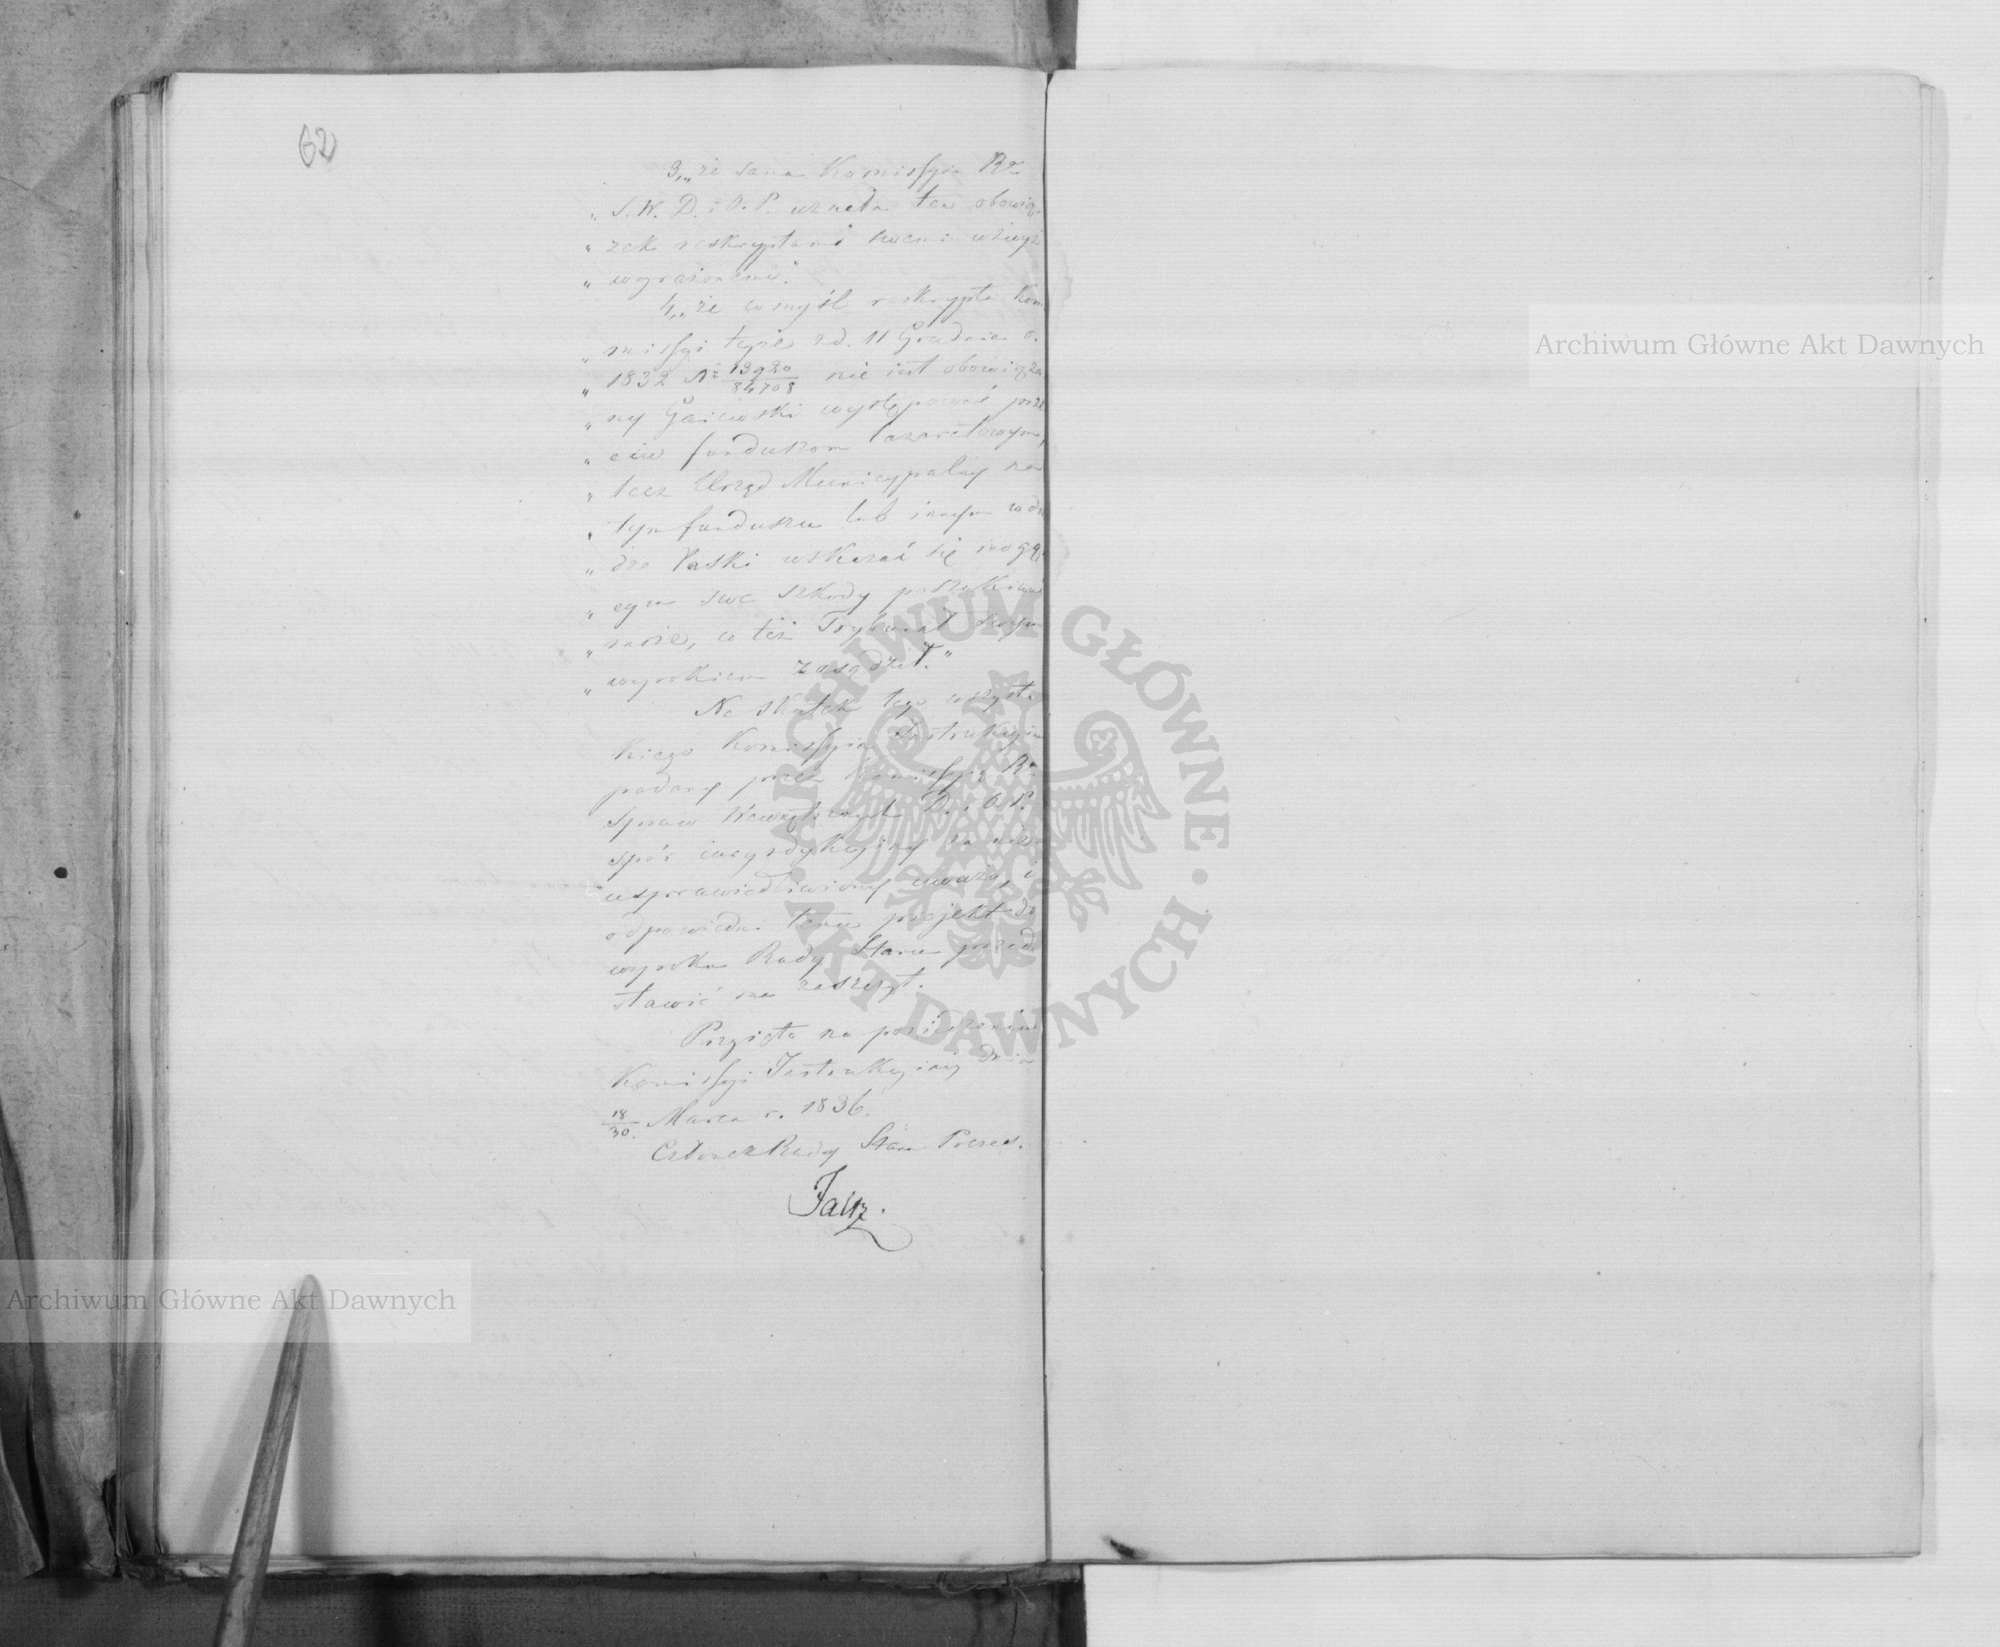 62
3, że sama Kommissyia Rz.
„ S. W. D. i O. P. uznała ten obowią-
„ zek reskryptami swemi wżwyż
„ wyrażonemi.
4, że w myśl reskryptu Kom
„ missyi tejże z d. 11 Grudnia r.
„ 1832 Nr 13920/84708 nie iest obowiąza
„ ny Gajewski występować prze
„ ciw funduszom lazaretowym,
„ lecz Urząd Municypalny na
„ tym funduszu lub innym
„ dze łaski wskazać się mogą-
„ cym swe szkody poszukiwać
„ może, co też Trybunał swym
„ wyrokiem zasądził."
Na skutek tego wszyst
kiego Kommissyia Instrukcyina
podany przez Kommissyię Rz.
Spraw Wewnętrznych D. i O. P.
spór iuryzdykcyiny za nie
usprawiedliwiony uważa, i
odpowiedni temu projekt do
wyroku Rady Stanu przed
stawić ma zaszczyt.
Przyięto na posiedzeniu
Komissyi Instrukcyiney dnia
18/30. Marca r. 1836.
Członek Rady Stanu Prezes.
Archiwum Główne Akt Dawnych
Archiwum Główne Akt Dawnych
ARCHIWUM GŁÓWNE AKT DAWNYCH